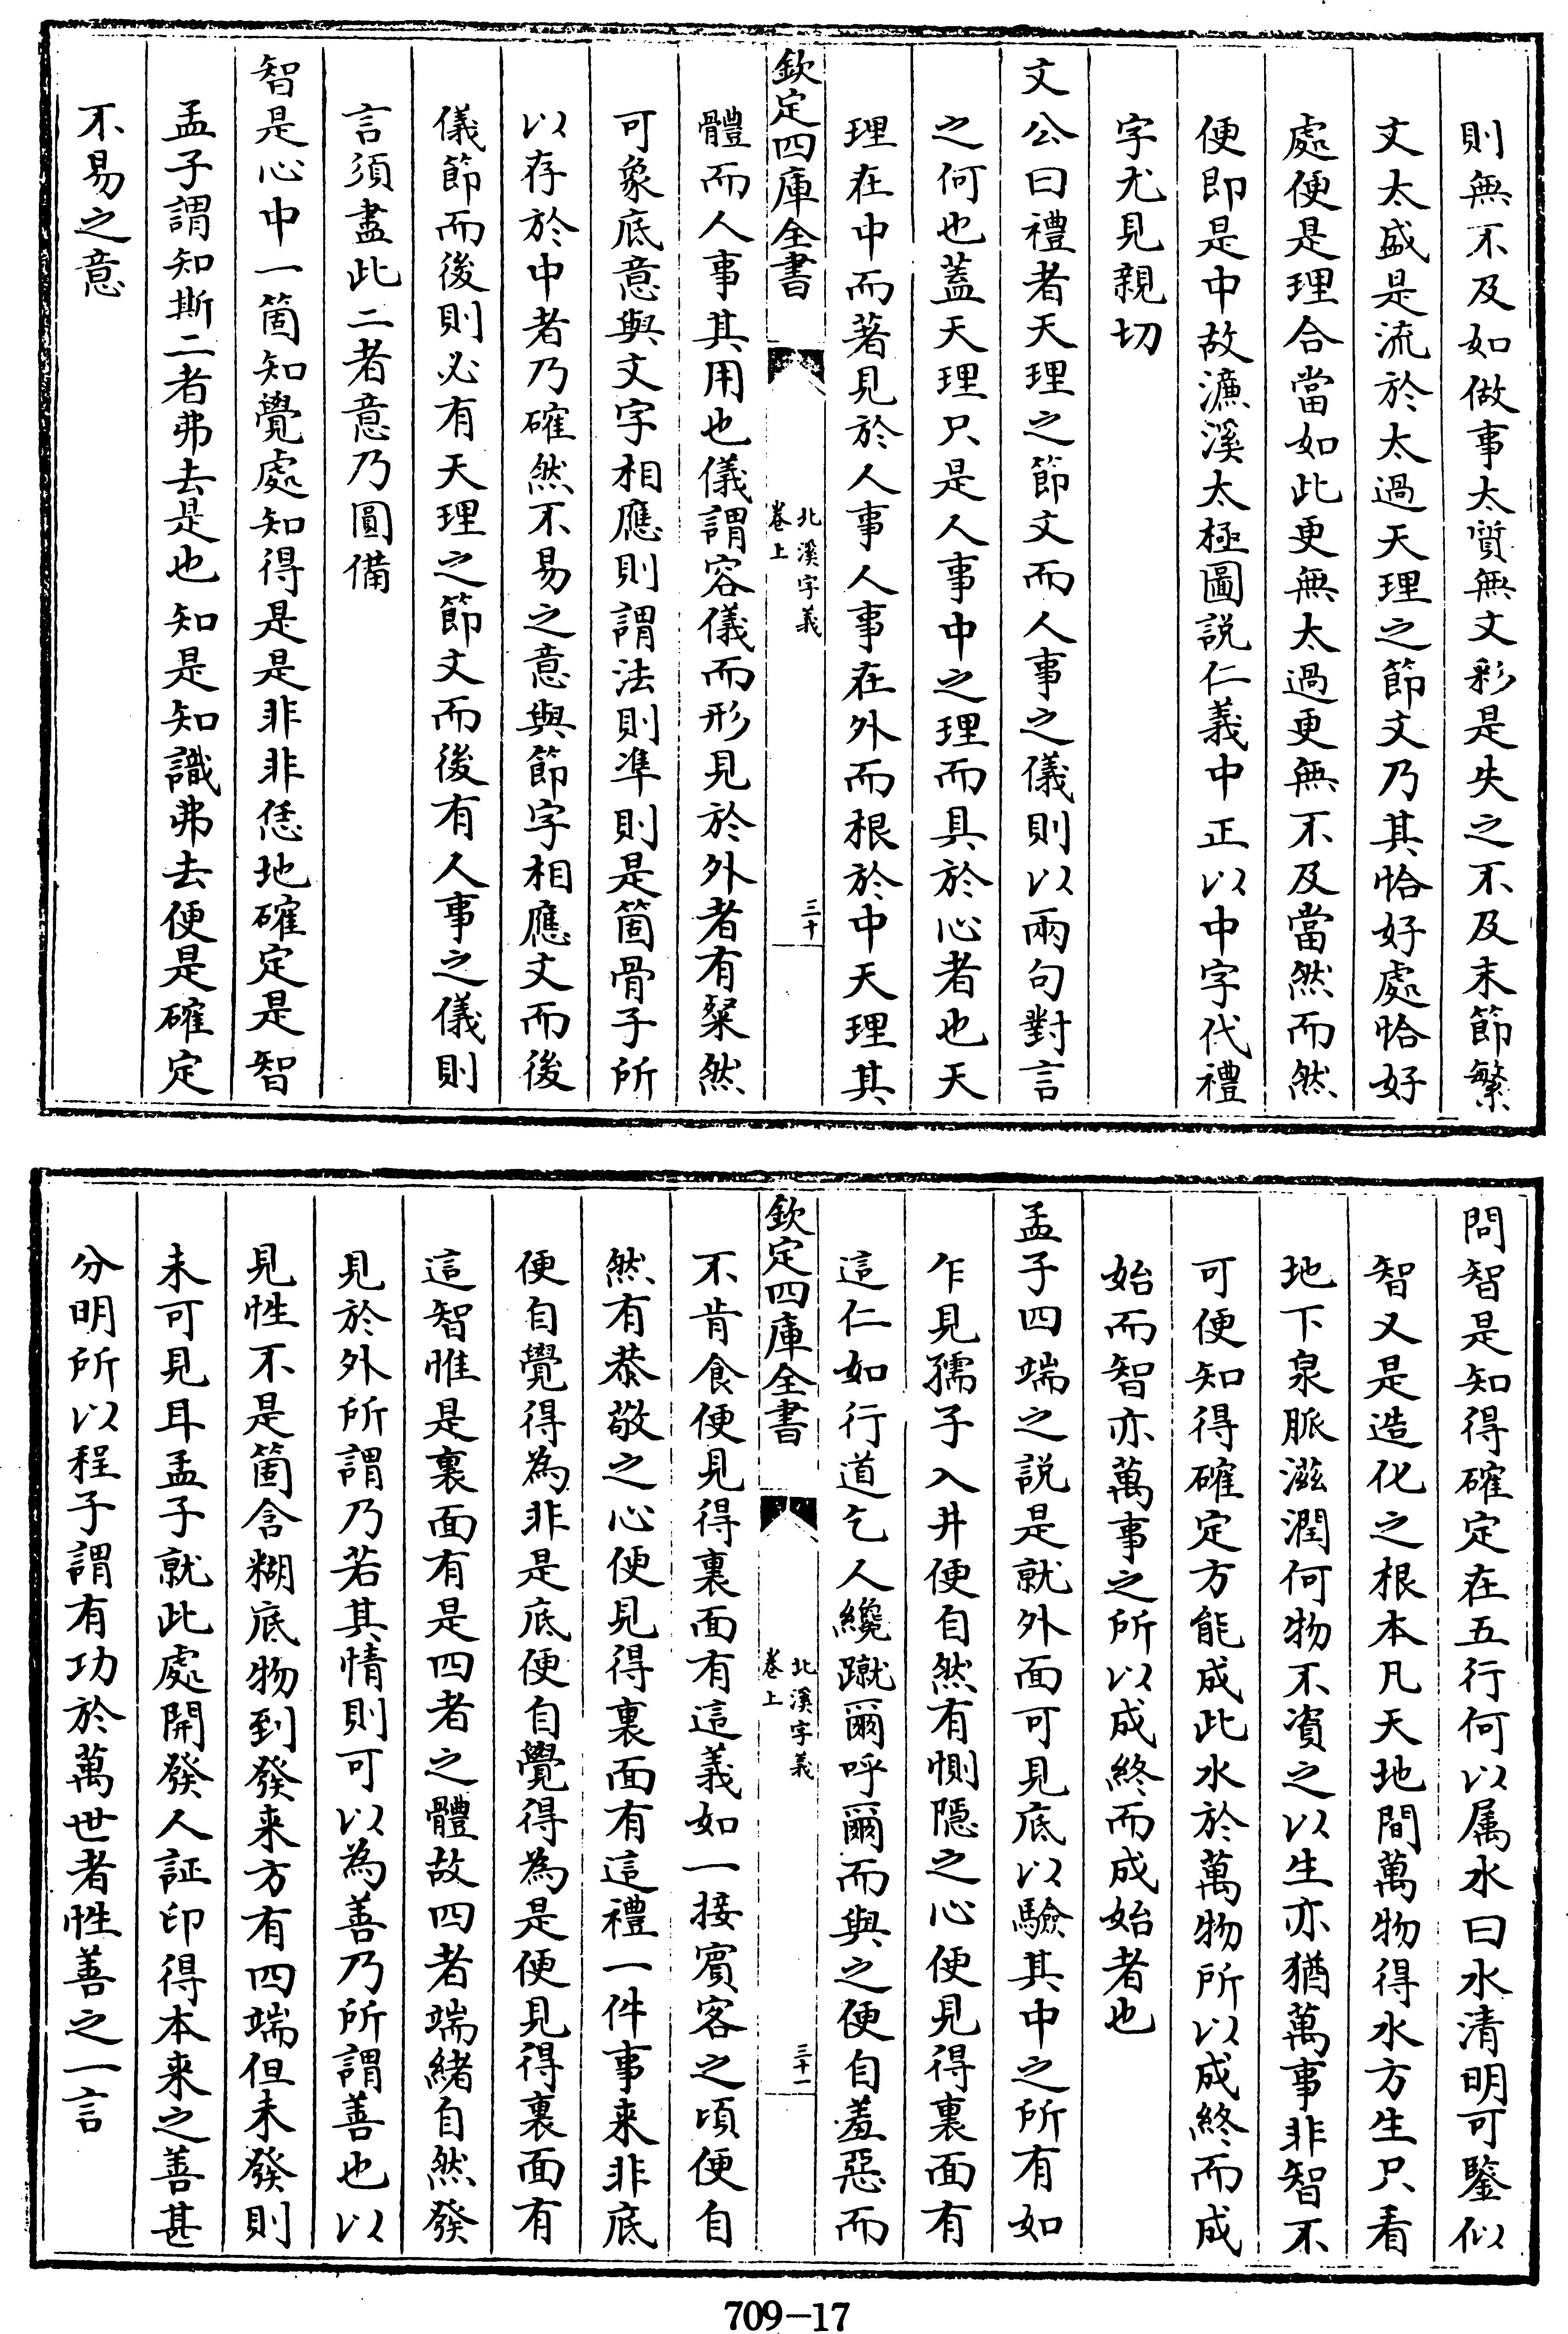 則無不及如做事太質無文彩是失之不及末節繁
文太盛是流於太過天理之節文乃其恰好處恰好
處便是理合當如此更無太過更無不及當然而然
便即是中故濂溪太極圖說仁義中正以中字代禮
字尤見親切
文公曰禮者天理之節文而人事之儀則以兩句對言
之何也蓋天理只是人事中之理而具於心者也天
理在中而著見於人事人事在外而根於中天理其
欽定四庫全書
北溪字義
卷上
三十
體而人事其用也儀謂容儀而形見於外者有粲然
可象底意與文字相應則謂法則準則是箇骨子所
以存於中者乃確然不易之意與節字相應文而後
儀節而後則必有天理之節文而後有人事之儀則
言須盡此二者意乃圓備
智是心中一箇知覺處知得是是非非恁地確定是智
孟子謂知斯二者弗去是也知是知識弗去便是確定
不易之意
問智是知得確定在五行何以属水曰水清明可鑒似
智又是造化之根本凡天地間萬物得水方生只看
地下泉脈滋潤何物不資之以生亦猶萬事非智不
可便知得確定方能成此水於萬物所以成終而成
始而智亦萬事之所以成終而成始者也
孟子四端之說是就外面可見底以驗其中之所有如
乍見孺子入井便自然有惻隱之心便見得裏面有
這仁如行道乞人纔蹴爾呼爾而與之便自羞惡而
欽定四庫全書
北溪字義
卷上
三十一
不肯食便見得裏面有這義如一接賓客之頃便自
然有恭敬之心便見得裏面有這禮一件事來非底
便自覺得為非是底便自覺得為是便見得裏面有
這智惟是裏面有是四者之體故四者端緒自然發
見於外所謂乃若其情則可以為善乃所謂善也以
見性不是箇含糊底物到發來方有四端但未發則
未可見耳孟子就此處開發人証印得本來之善甚
分明所以程子謂有功於萬世者性善之一言
709-17